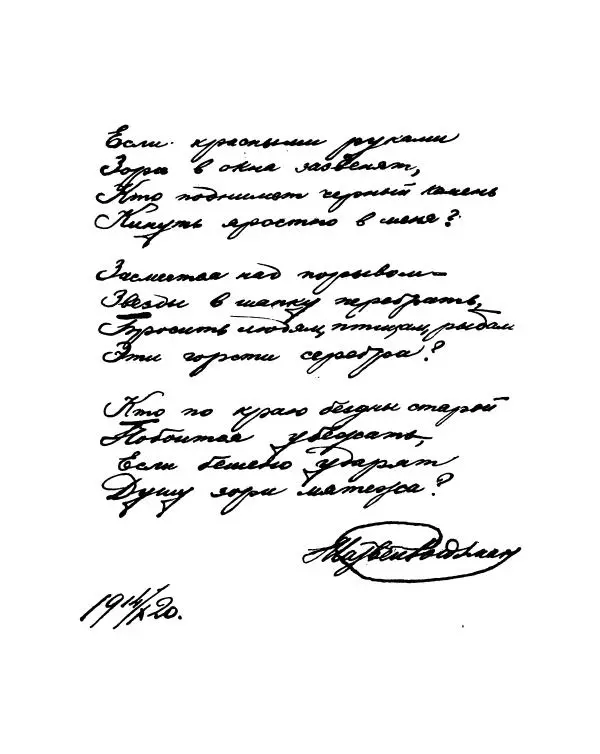 Если красными руками
Зори в окна зазвенят,
Кто поднимет черный камень
Кинуть яростно в меня?
Засмеется над порывом –
Звезды в шапку перебрать,
Бросить людям, птицам, рыбам
Эти горсти серебра?
Кто по краю бездны старой
Побоится убежать,
Если бешено ударят
Душу зори мятежа?
Матвей Ройзман
19 14/X 20.